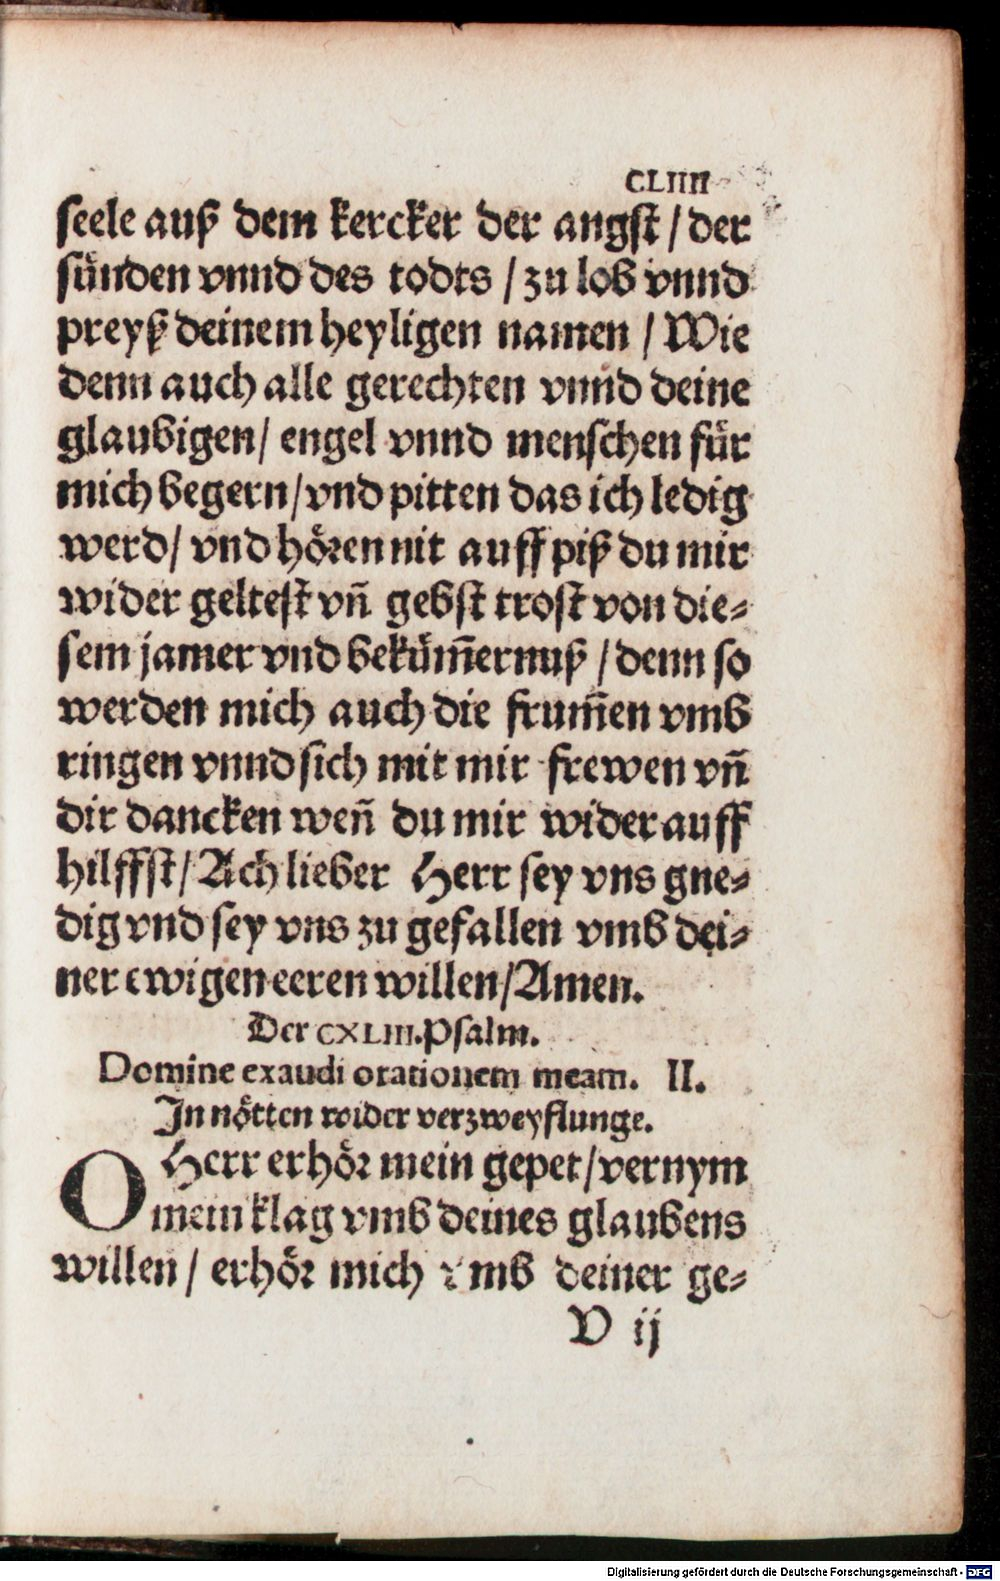 CLIIII
seele auß dem kercker der angst / der
sünden vnnd des todts / zu lob vnnd
preyß deinem heyligen namen / Wie
denn auch alle gerechten vnnd deine
glaubigen / engel vnnd menschen für
mich begern / vnd pitten das ich ledig
werd / vnd hören nit auff piß du mir
wider geltest vn̄ gebst trost von die⸗
sem jamer vnd bekum̄ernuß / denn so
werden mich auch die frum̄en vmb
ringen vnnd sich mit mir frewen vn̄
dir dancken wen̄ du mir wider auff
hilffst / Ach lieber Herr sey vns gne⸗
dig vnd sey vns zu gefallen vmb dei⸗
ner ewigen eeren willen / Amen.
Der CXLIII. Psalm.
Domine exaudi orationem meam. II.
In nötten wider verzweyflunge.
O Herr erhör mein gepet / vernym
mein klag vmb deines glaubens
willen / erhör mich vmb deiner ge⸗
V ij
Digitalisierung gefördert durch die Deutsche Forschungsgemeinschaft - DFG